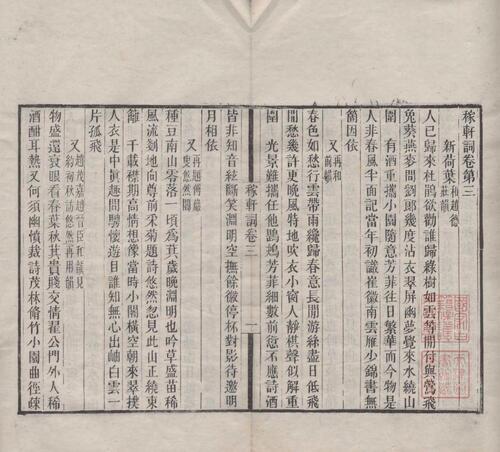 稼軒詞卷第三
新荷葉 和趙德莊韻
人已歸來杜鵑欲勸誰歸綠樹如雲等閒付與鶯飛
兔葵燕麥問劉郎幾度沾衣翠屏幽夢覺來水繞山
圍 有酒重攜小園隨意芳菲往日繁華而今物是
人非春風半面記當年初識崔徽南雲雁少錦書無
箇因依
又 再和前韻
春色如愁行雲帶雨纔歸春意長閒游絲盡日低飛
閒愁幾許更晚風特地吹衣小窗人靜棋聲似解
圍 光景難攜任他鶗鴂芳菲細數前愆不應詩酒
稼軒詞卷三 一
皆非知音絃斷笑淵明空撫餘徽停杯對影待邀明
月相依
又 再題傅巖叟悠然閣
種豆南山零落一頃爲萁歲晚淵明也吟草盛苗稀
風流剗地向尊前采菊題詩悠然忽見此山正繞東
籬 千載襟期高情想像當時小閣橫空朝來翠撲
人衣是中眞趣問騁懷遊目誰知無心出岫白雲一
片孤飛
又 趙茂嘉趙晉臣和韻見約初秋訪悠然再用韻
物盛還衰眼看春葉秋萁貴賤交情翟公門外人稀
酒酣耳熱又何須幽憤裁詩茂林脩竹小園曲徑疎